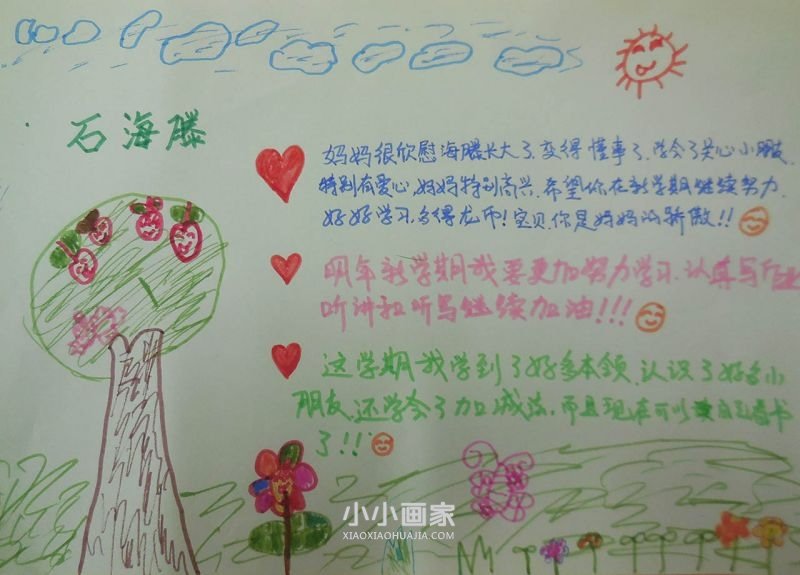 石海滕
妈妈很欣慰海滕长大了,变得懂事了,学会了关心小朋友,
特别有爱心,妈妈特别高兴,希望你在新学期继续努力,
好好学习,多得龙币!宝贝,你是妈妈的骄傲!!
明年新学期我要更加努力学习,认真写作业
听讲和听写继续加油!!!
这学期我学到了好多本领,认识了好多小
朋友,还学会了加减法,而且现在可以读自己看书
了!!
小小画家
XIAOXIAOHUAJIA.COM